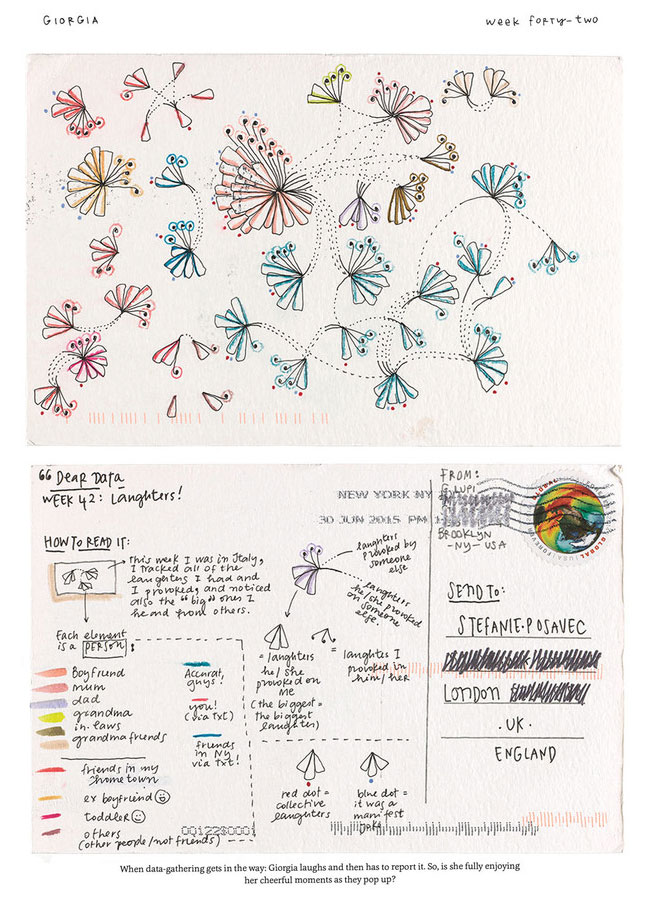 GIORGIA
week forty-two
“ Dear Data
Week 42: Laughters!
HOW TO READ IT:
This week I was in Italy,
I tracked all of the
laughters I had and
I provoked, and noticed
also the "big" ones I
heard from others.
Each element
is a person:
Boyfriend
mum
dad
grandma
in-laws
grandma friends
friends in my
hometown
ex boyfriend
toddler
others
(other people/not friends)
Accurat,
guys!
you!
(via txt)
friends
in NY
via txt!
laughters
provoked by
someone
else
laughters
he/she provoked
on someone
else.
= laughters
he/she
provoked on
me
(the biggest =
the biggest
laughter)
= laughters I
provoked in
him/her
red dot =
collective
laughters
blue dot =
it was a
manifest
joke
NEW YORK NY
30 JUN 2015 PM
FROM:
G. LUPI
BROOKLYN
-NY- USA
GLOBAL
SEND TO:
STEFANIE·POSAVEC
LONDON
·UK·
ENGLAND
When data-gathering gets in the way: Giorgia laughs and then has to report it. So, is she fully enjoying
her cheerful moments as they pop up?